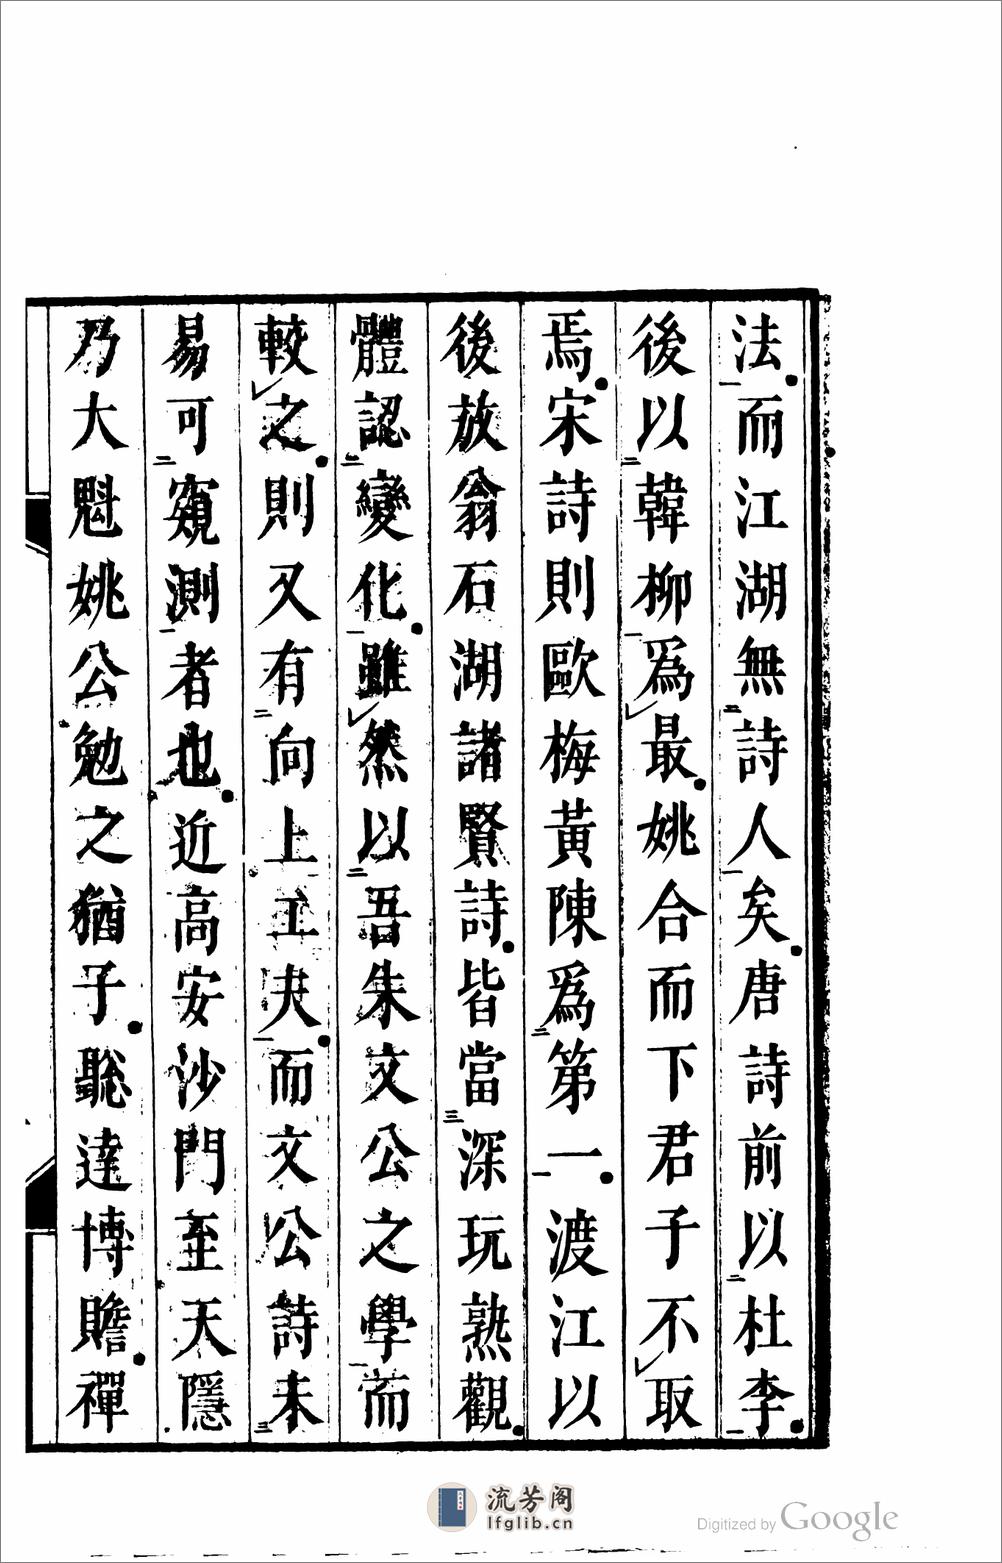 法而江湖無詩人矣唐詩前以杜李
後以韓柳爲最姚合而下君子不取
焉宋詩則歐梅黃陳爲第一渡江以
後放翁石湖諸賢詩皆當深玩熟觀
體認變化雖然以吾朱文公之學而
較之則又有向上工夫而文公詩未
易可窺測者也近高安沙門至天隱
乃大魁姚公勉之猶子聡達博贍禪
流芳阁
lfglib.cn
Digitized by Google